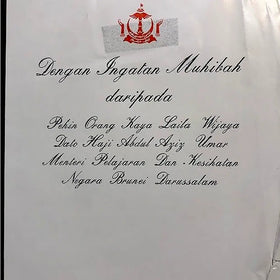 Dengan Ingatan Muhibah
daripada
Pehin Orang Kaya Laila Wijaya
Dato Haji Abdul Aziz Umar
Menteri Pelajaran Dan Kesihatan
Negara Brunei Darussalam